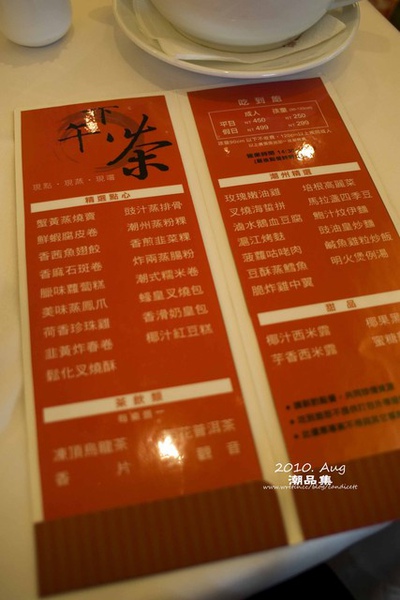 下午茶
現點·現蒸·現嚐
精選點心
蟹黃蒸燒賣
鮮蝦腐皮卷
香茜魚翅餃
香麻石斑卷
臘味蘿蔔糕
美味蒸鳳爪
荷香珍珠雞
韭黃炸春卷
鬆化叉燒酥
豉汁蒸排骨
潮州蒸粉粿
香煎韭菜粿
炸兩蒸腸粉
潮式糯米卷
蜂皇叉燒包
香滑奶皇包
椰汁紅豆糕
茶飲類
每壺選一
凍頂烏龍茶
香片
花普洱茶
觀音
吃到飽
成人
孩童
平日
NT 450
NT 250
假日
NT 499
NT 299
潮州精選
玫瑰嫩油雞
叉燒海蜇拼
滷水鵝血豆腐
滬江烤麩
菠蘿咕咾肉
豆酥蒸鱈魚
脆炸雞中翼
培根高麗菜
馬拉盞四季豆
鮑汁炆伊麵
豉油皇炒麵
鹹魚雞粒炒飯
明火煲例湯
甜品
椰汁西米露
芋香西米露
椰果果
蜜糖
2010. Aug
潮品集